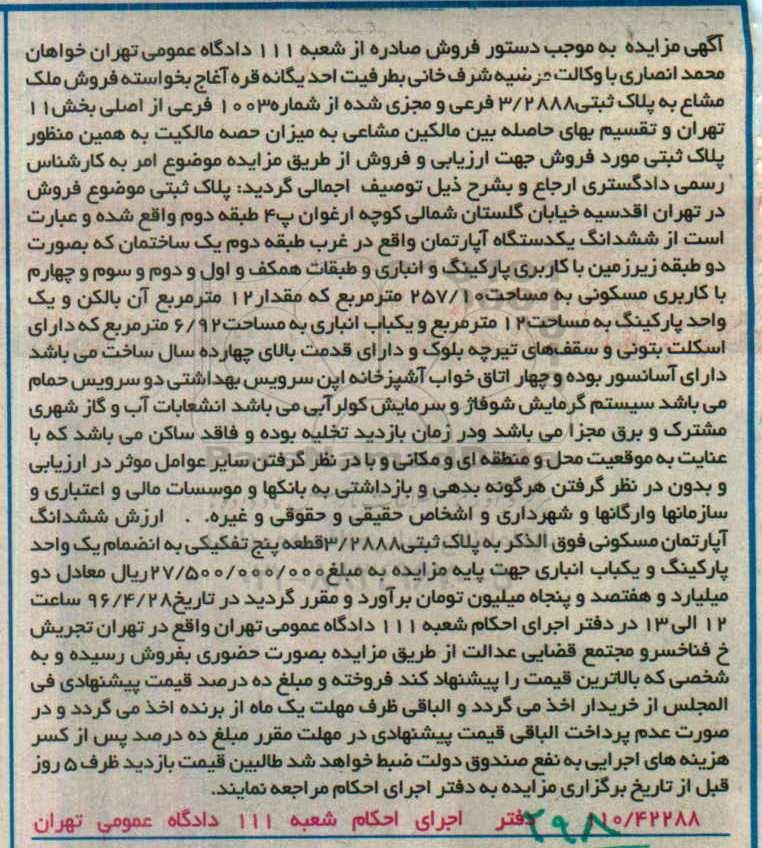 آگهی مزایده به موجب دستور فروش صادره از شعبه ۱۱۱ دادگاه عمومی تهران خواهان
محمد انصاری با وکالت مرضیه شرف خانی بطرفیت احد یگانه قره آغاج بخواسته فروش ملک
مشاع به پلاک ثبتی۳/۲۸۸۸ فرعی و مجزی شده از شماره۱۰۰۳ فرعی از اصلی بخش۱۱
تهران و تقسیم بهای حاصله بین مالکین مشاعی به میزان حصه مالکیت به همین منظور
پلاک ثبتی مورد فروش جهت ارزیابی و فروش از طریق مزایده موضوع امر به کارشناس
رسمی دادگستری ارجاع و بشرح ذیل توصیف اجمالی گردید: پلاک ثبتی موضوع فروش
در تهران اقدسیه خیابان گلستان شمالی کوچه ارغوان پ۴ طبقه دوم واقع شده و عبارت
است از ششدانگ یکدستگاه آپارتمان واقع در غرب طبقه دوم یک ساختمان که بصورت
دو طبقه زیرزمین با کاربری پارکینگ و انباری و طبقات همکف و اول و دوم و سوم و چهارم
با کاربری مسکونی به مساحت۲۵۷/۱۰ مترمربع که مقدار۱۲ مترمربع آن بالکن و یک
واحد پارکینگ به مساحت۱۲ مترمربع و یکباب انباری به مساحت۶/۹۲ مترمربع که دارای
اسکلت بتونی و سقفهای تیرچه بلوک و دارای قدمت بالای چهارده سال ساخت می باشد
دارای آسانسور بوده و چهار اتاق خواب آشپزخانه اپن سرویس بهداشتی دو سرویس حمام
می باشد سیستم گرمایش شوفاژ و سرمایش کولرآبی می باشد انشعابات آب و گاز شهری
مشترک و برق مجزا می باشد ودر زمان بازدید تخلیه بوده و فاقد ساکن می باشد که با
عنایت به موقعیت محل و منطقه ای و مکانی و با در نظر گرفتن سایر عوامل موثر در ارزیابی
و بدون در نظر گرفتن هرگونه بدهی و بازداشتی به بانکها و موسسات مالی و اعتباری و
سازمانها وارگانها و شهرداری و اشخاص حقیقی و حقوقی و غیره. . ارزش ششدانگ
آپارتمان مسکونی فوق الذکر به پلاک ثبتی۳/۲۸۸۸قطعه پنج تفکیکی به انضمام یک واحد
پارکینگ و یکباب انباری جهت پایه مزایده به مبلغ۲۷/۵۰۰/۰۰۰/۰۰۰ریال معادل دو
میلیارد و هفتصد و پنجاه میلیون تومان برآورد و مقرر گردید در تاریخ۹۶/۴/۲۸ ساعت
۱۲ الی۱۳ در دفتر اجرای احکام شعبه ۱۱۱ دادگاه عمومی تهران واقع در تهران تجریش
خ فناخسرو مجتمع قضایی عدالت از طریق مزایده بصورت حضوری بفروش رسیده و به
شخصی که بالاترین قیمت را پیشنهاد کند فروخته و مبلغ ده درصد قیمت پیشنهادی فی
المجلس از خریدار اخذ می گردد و الباقی ظرف مهلت یک ماه از برنده اخذ می گردد و در
صورت عدم پرداخت الباقی قیمت پیشنهادی در مهلت مقرر مبلغ ده درصد پس از کسر
هزینه های اجرایی به نفع صندوق دولت ضبط خواهد شد طالبین قیمت بازدید ظرف ۵ روز
قبل از تاریخ برگزاری مزایده به دفتر اجرای احکام مراجعه نمایند.
۱۱۰/۴۲۲۸۸ دفتر اجرای احکام شعبه ۱۱۱ دادگاه عمومی تهران